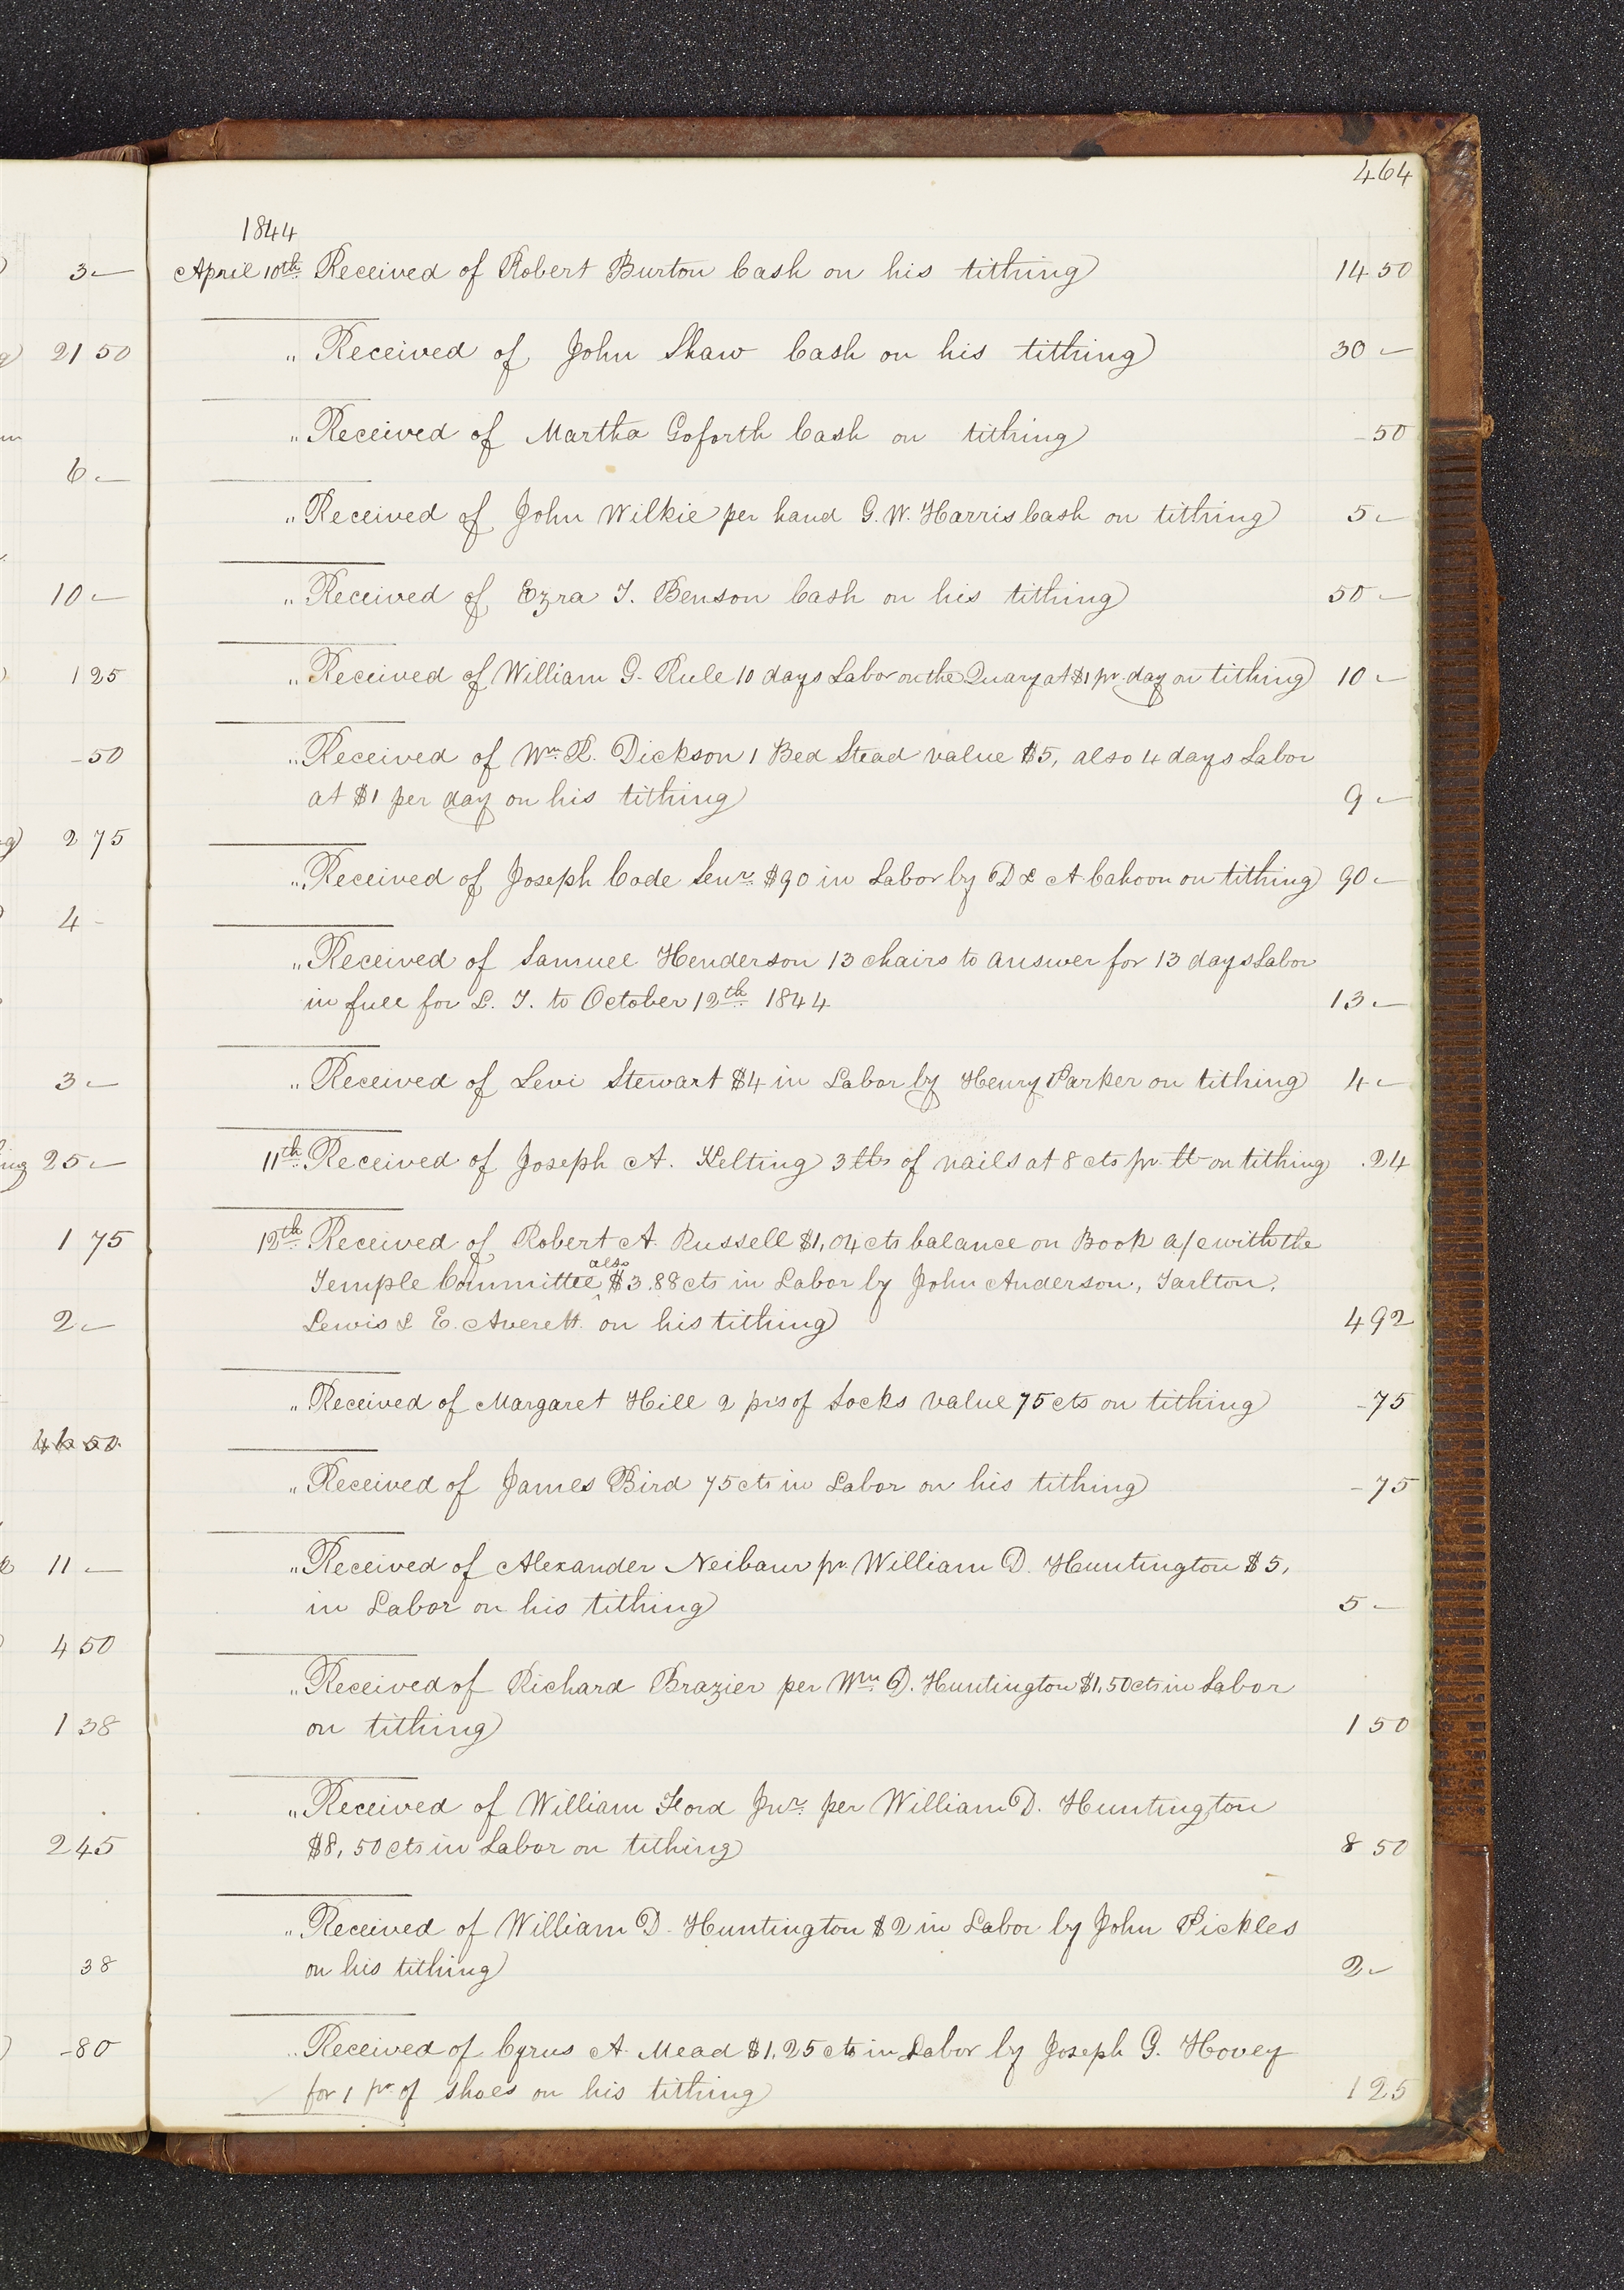 464
1844
April 10th. Received of Robert Burton Cash on his tithing 14 50
" Received of John Shaw Cash on his tithing 30 -
" Received of Martha Goforth Cash on tithing - 50
" Received of John Wilkie per hand G. W. Harris Cash on tithing 5 -
" Received of Ezra T. Benson Cash on his tithing 50 -
" Received of William G. Rule 10 days Labor on the Quary at $1 pr. day on tithing 10 -
" Received of Wm. R. Dickson 1 Bed Stead value $5, also 4 days Labor
at $1 per day on his tithing 9 -
" Received of Joseph Code Senr. $90 in Labor by D & A Cahoon on tithing 90 -
" Received of Samuel Henderson 13 chairs to answer for 13 days Labor
in full for L. T. to October 12th. 1844 13 -
" Received of Levi Stewart $4 in Labor by Henry Parker on tithing 4 -
11th. Received of Joseph A. Kelting 3 lbs of nails at 8 cts pr. lb on tithing .24
12th. Received of Robert A. Russell $1,04 cts balance on Book a/c with the
Temple Committee, also $3.88 cts in Labor by John Anderson, Tarlton.
Lewis & E. Averett. on his tithing 4 92
" Received of Margaret Hill 2 prs of Socks value 75 cts on tithing - 75
" Received of James Bird 75 cts in Labor on his tithing - 75
" Received of Alexander Neibaur pr. William D. Huntington $5,
in Labor on his tithing 5 -
" Received of Richard Brazier per Wm. D. Huntington $1,50 cts in Labor
on tithing 1 50
" Received of William Ford Jnr. per William D. Huntington
$8,50 cts in Labor on tithing 8 50
" Received of William D. Huntington $2 in Labor by John Pickles
on his tithing 2 -
" Received of Cyrus A. Mead $1,25 cts in Labor by Joseph G. Hovey
for 1 pr of shoes on his tithing 1 25
3 -
21 50
6 -
10 -
1 25
- 50
2 75
4 -
3 -
25 -
1 75
2 -
11 -
4 50
1 38
2 45
38
- 80